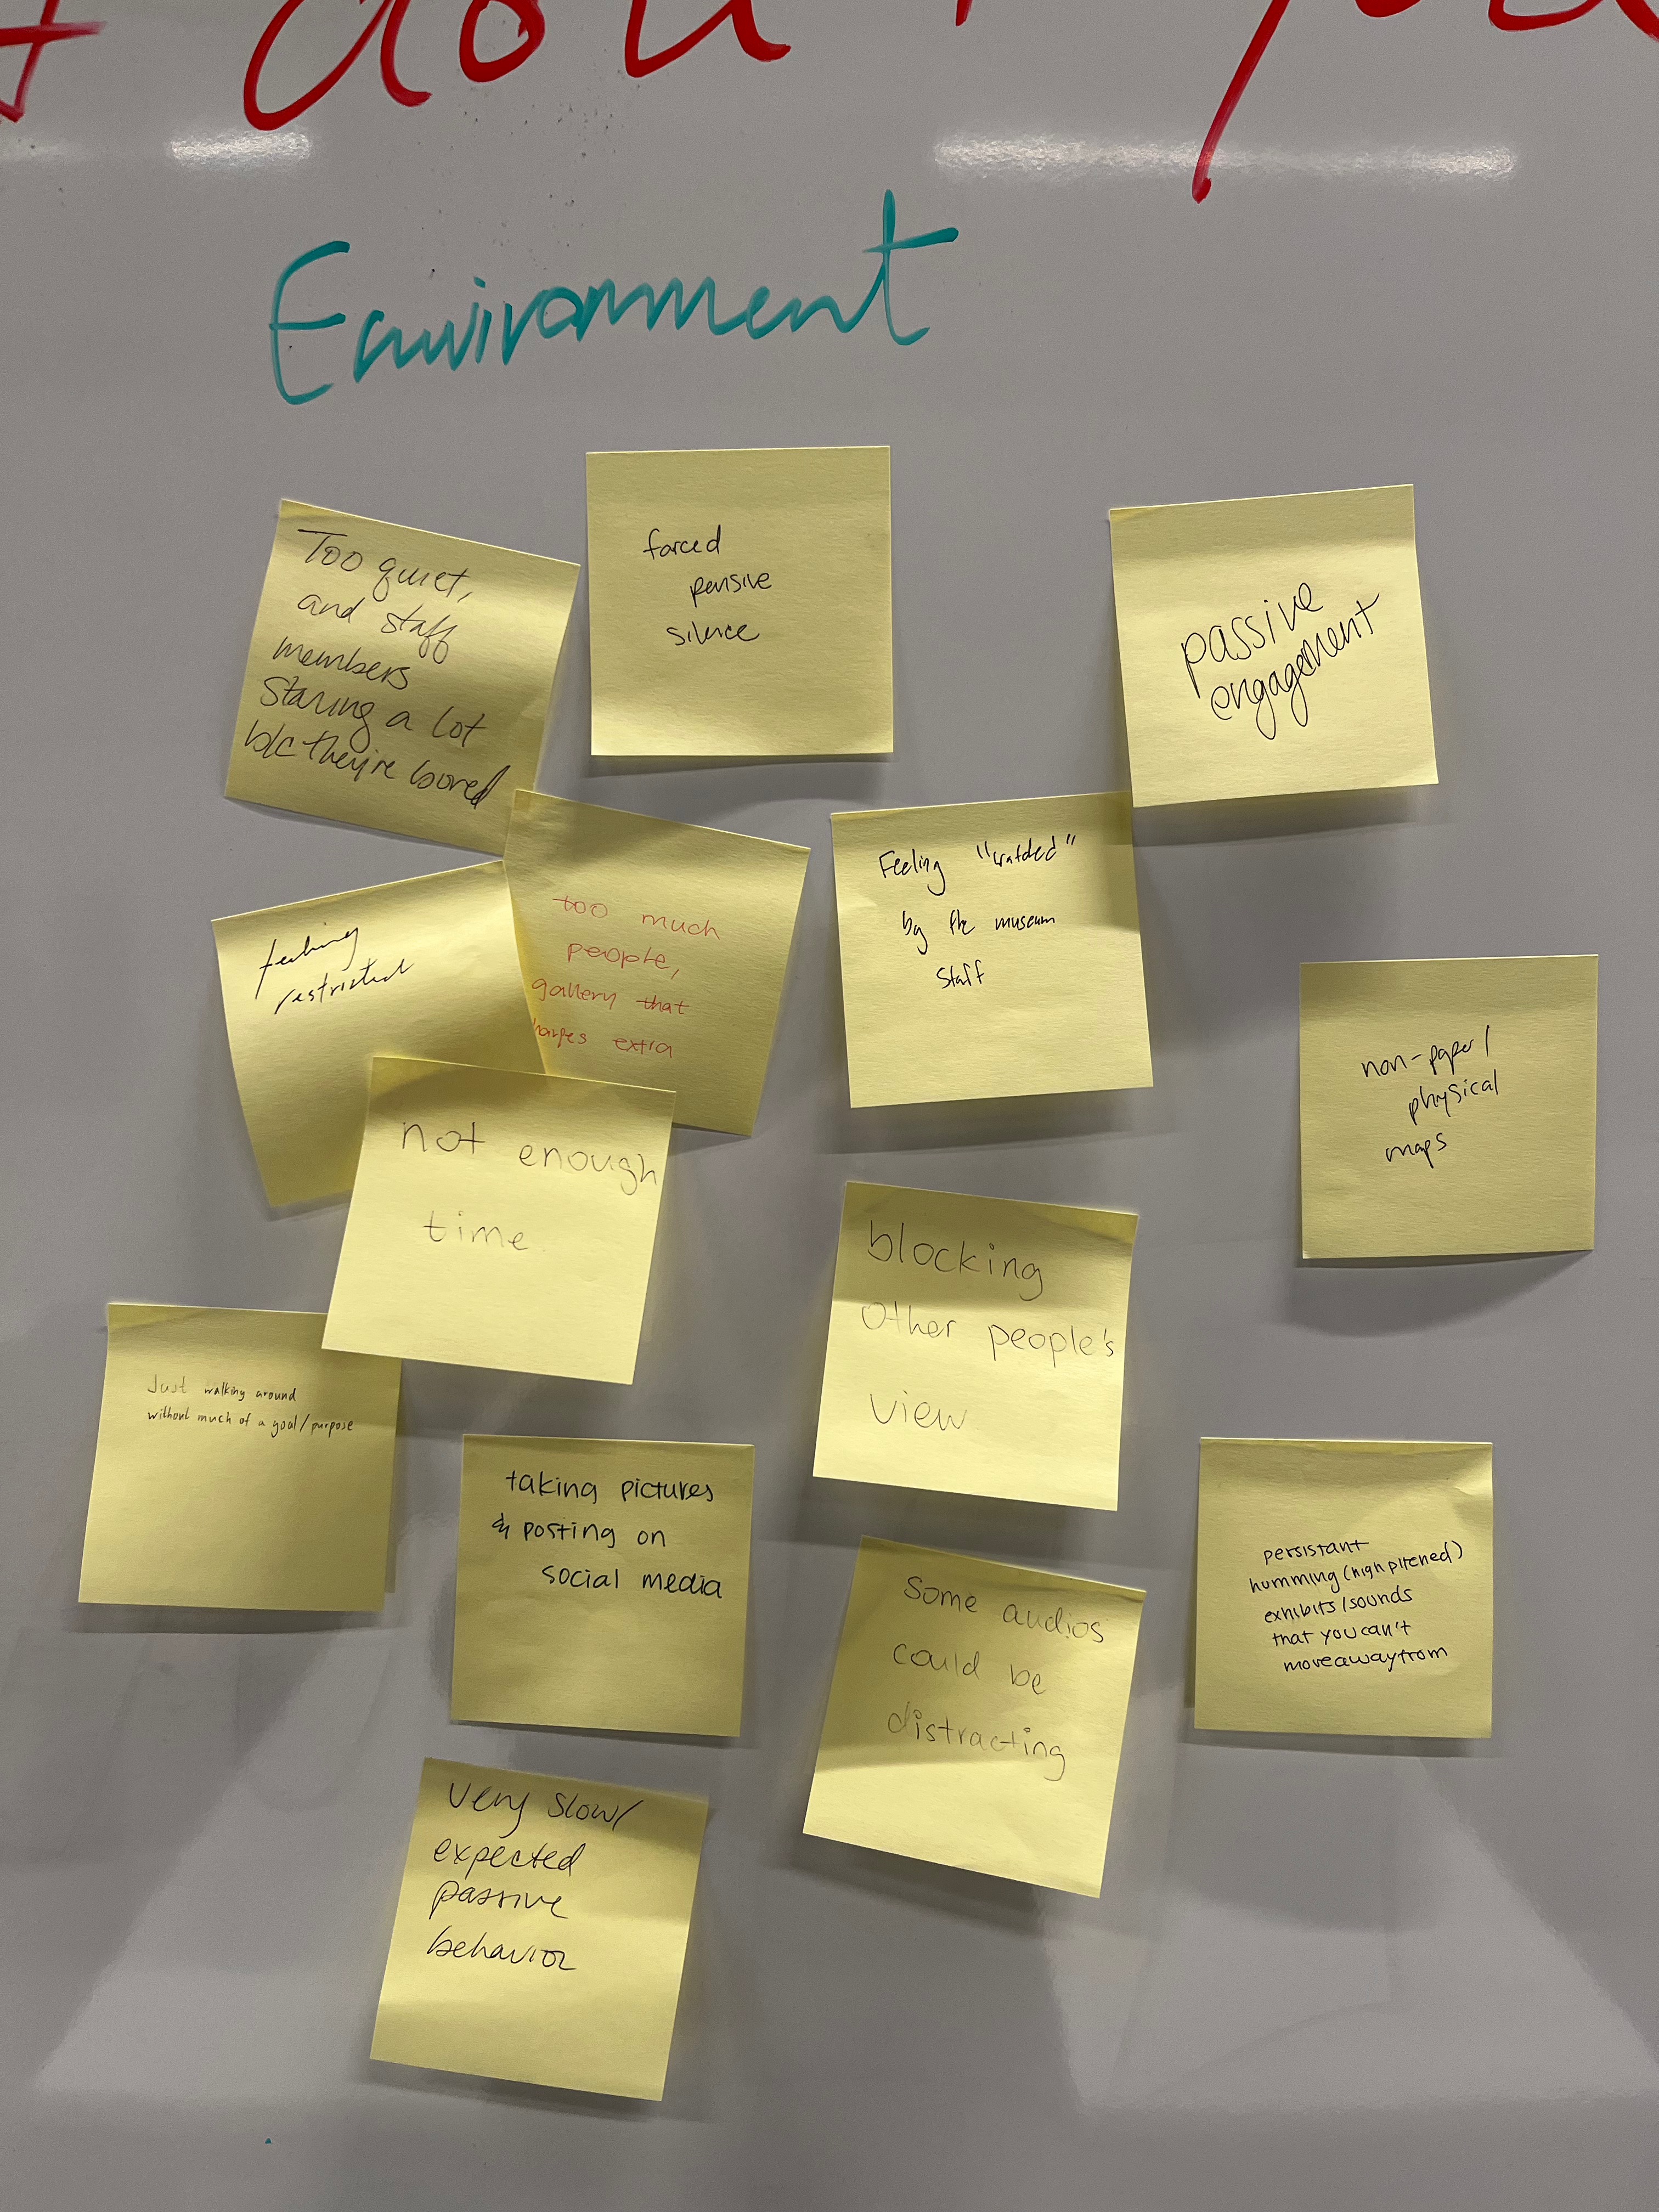 don't you
Environment
Too quiet,
and staff
members
staring a lot
b/c they're bored
forced
pensive
silence
passive
engagement
feeling
restricted
too much
people,
gallery that
harges extra
Feeling "watded"
by the museum
staff
non-paper/
physical
maps
not enough
time
blocking
other people's
view
Just walking around
without much of a goal/purpose
taking pictures
& posting on
social media
some audios
could be
distracting
persistant
humming (high pitched)
exhibits/sounds
that you can't
move away from
very slow/
expected
passive
behavior